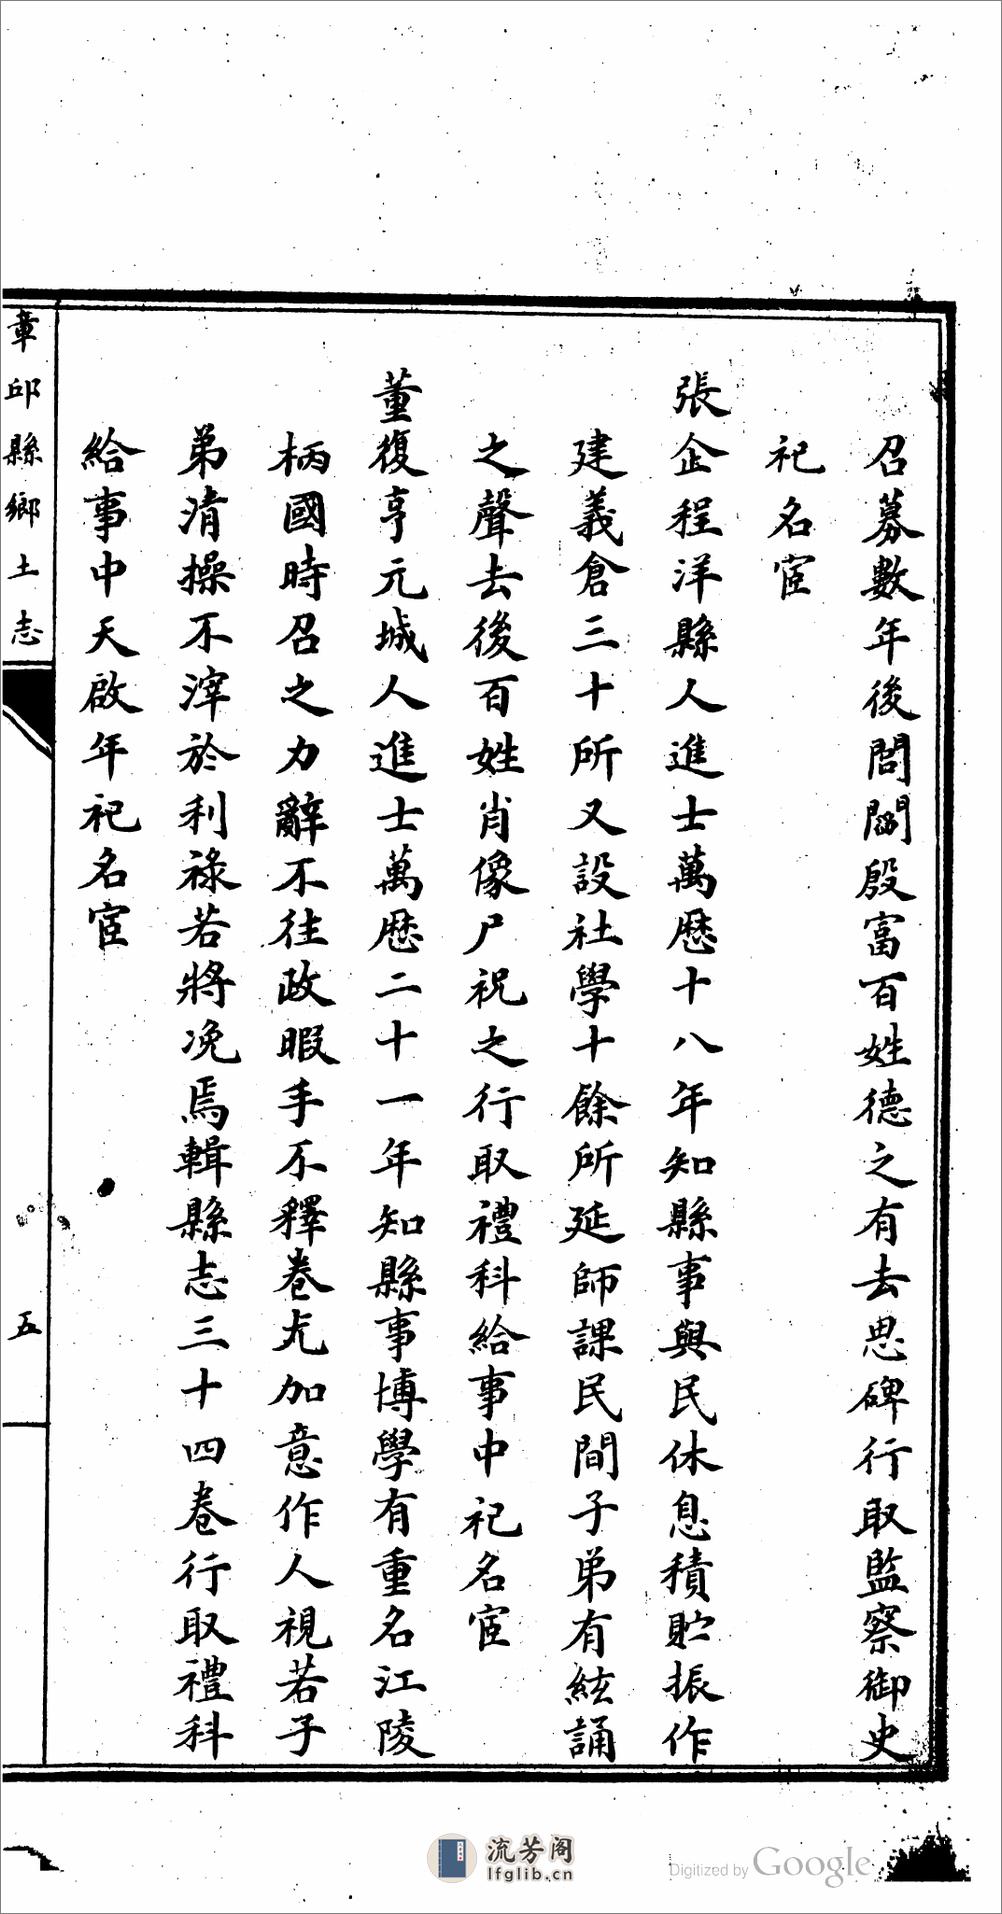 召募數年後閭閻殷富百姓德之有去思碑行取監察御史
祀名宦
張企程洋縣人進士萬厯十八年知縣事與民休息積貯振作
建義倉三十所又設社學十餘所延師課民間子弟有絃誦
之聲去後百姓肖像尸祝之行取禮科給事中祀名宦
董復亨元城人進士萬厯二十一年知縣事博學有重名江陵
柄國時召之力辭不往政暇手不釋卷尤加意作人視若子
弟清操不滓於利祿若將浼焉輯縣志三十四卷行取禮科
給事中天啟年祀名宦
章邱縣鄉土志
五
流芳阁
lfglib.cn
Digitized by Google